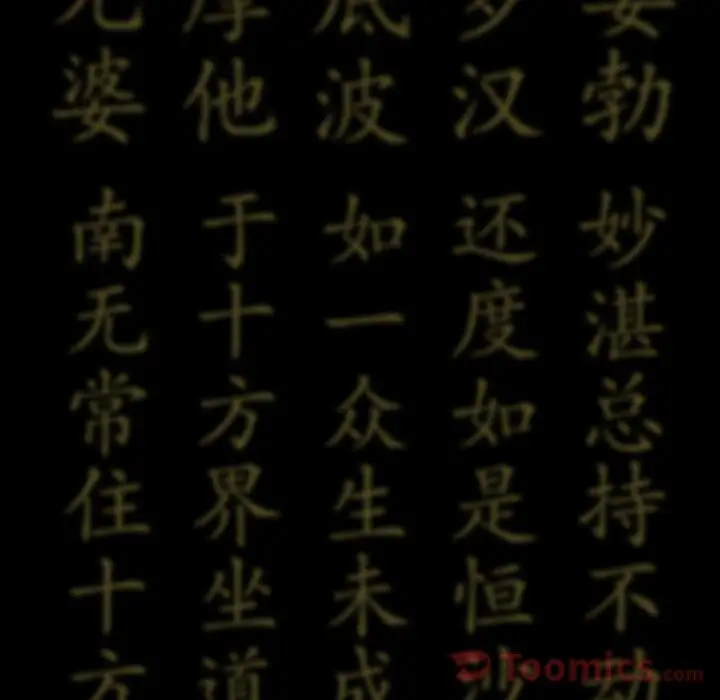 勃
汉
底波
摩他
无婆
妙湛总持不动
还度如是恒沙
如一众生未成
于十方界坐道
南无常住十方
Toomics.com